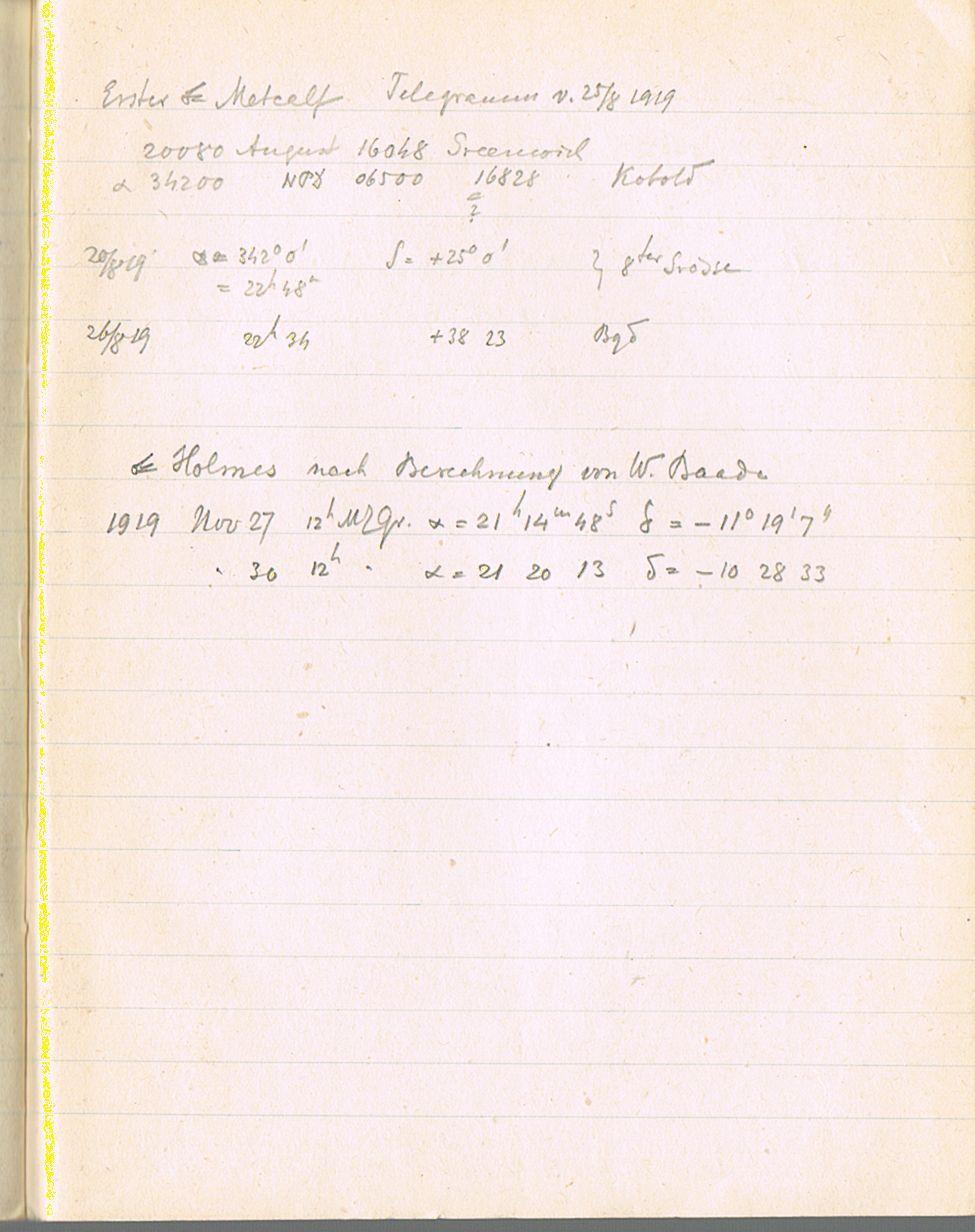 Erster ☄ Metcalf Telegramm v. 25/8 1919
20080 August 16048 Greenwich
α 34200 NPD 06500 16828 Kobold
=
?
20/8 19 α = 342° 0' δ = +25° 0' } 8ter Grösse
= 22h 48m
26/8 19 22h 34 +38 23 Bqd
☄ Holmes nach Berechnung von W. Baade
1919 Nov 27 12h MZGr. α = 21h 14m 48s δ = -11° 19' 7"
" 30 12h " α = 21 20 13 δ = -10 28 33